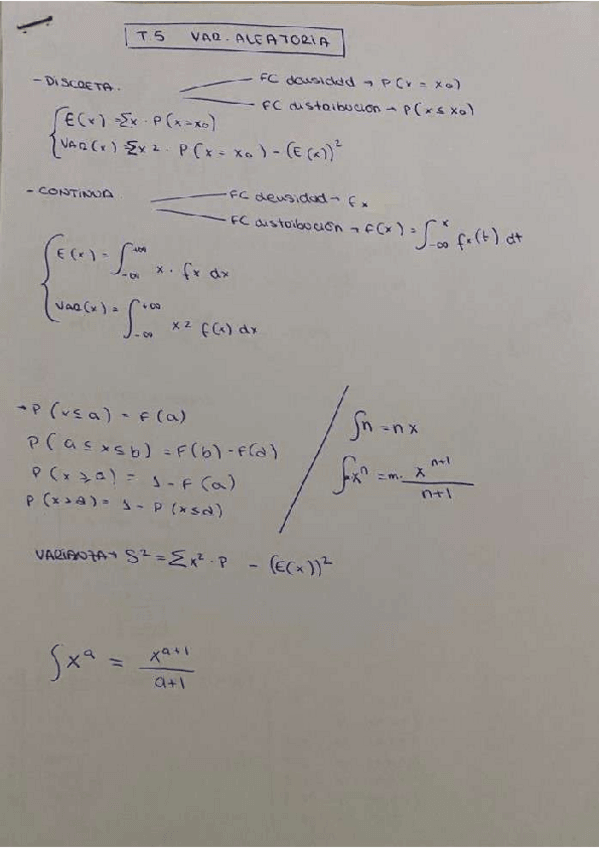 T.5 VAR. ALEATORIA
- DISCRETA.
FC densidad → P(x = x₀)
FC distribución → P(x ≤ x₀)
E(x) = Σx · P(x=x₀)
VAR(x) Σx² · P(x = x₀) - (E(x))²
- CONTINUA
FC densidad → fx
FC distribución → F(x) = ∫_{-∞}^{x} fx(t) dt
E(x) = ∫_{-∞}^{+∞} x · fx dx
VAR(x) = ∫_{-∞}^{+∞} x² f(x) dx
→ P(x ≤ a) = F(a)
P(a ≤ x ≤ b) = F(b) - F(a)
P(x ≥ a) = 1 - F(a)
P(x > a) = 1 - P(x ≤ a)
∫n = nx
∫mxⁿ = m · x^{n+1}/n+1
VARIANZA → S² = Σx² · P - (E(x))²
∫xᵃ = x^{a+1}/a+1